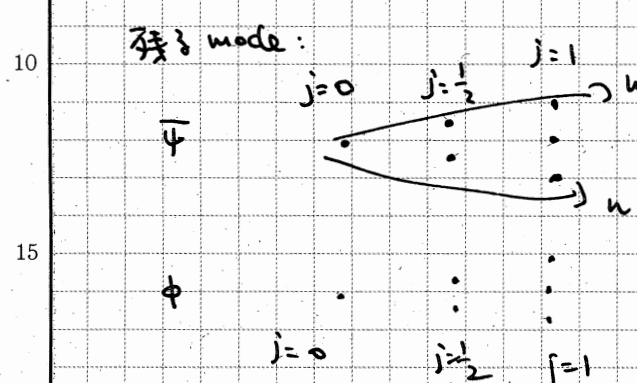 10
残る mode:
j=0 j=1/2 j=1
Ψ̅
n
15
ϕ
j=0 j=1/2 j=1